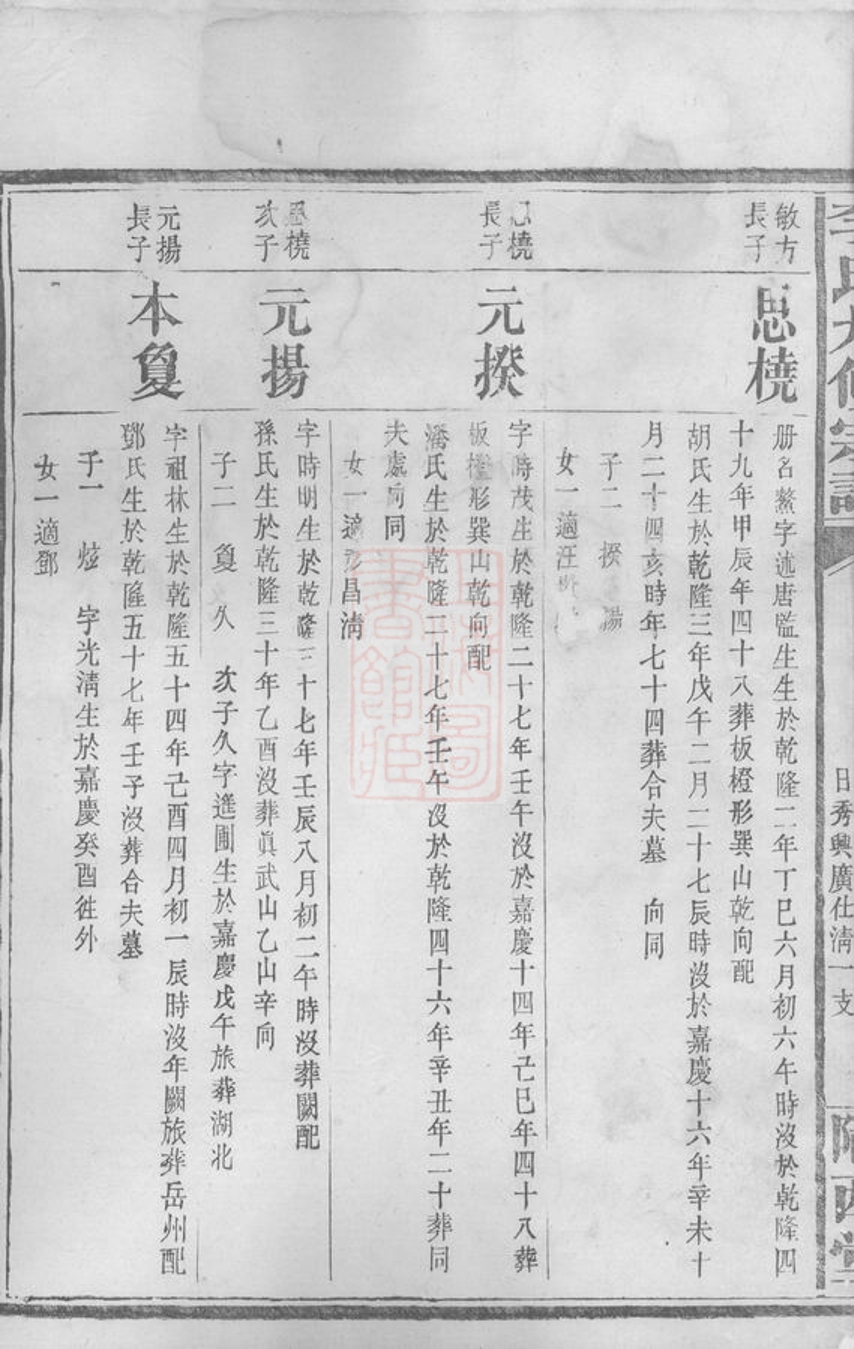 李氏九修宗譜
日秀興廣仕淸一支
隴西堂
敏方
長子
思橈
册名鰲字述唐監生生於乾隆二年丁巳六月初六午時沒於乾隆四
十九年甲辰年四十八葬板橙形巽山乾向配
胡氏生於乾隆三年戊午二月二十七辰時沒於嘉慶十六年辛未十
月二十四亥時年七十四葬合夫墓 向同
子二 揆 揚
女一適汪
思橈
長子
元揆
字時茂生於乾隆二十七年壬午沒於嘉慶十四年己巳年四十八葬
板橙形巽山乾向配
潘氏生於乾隆二十七年壬午沒於乾隆四十六年辛丑年二十葬同
夫處向同
女一適 昌淸
思橈
次子
元揚
字時明生於乾隆三十七年壬辰八月初二午時沒葬闕配
孫氏生於乾隆三十年乙酉沒葬眞武山乙山辛向
子二 敻 久 次子久字進圃生於嘉慶戊午旅葬湖北
元揚
長子
本敻
字祖林生於乾隆五十四年己酉四月初一辰時沒年闕旅葬岳州配
鄧氏生於乾隆五十七年壬子沒葬合夫墓
子一 炫 字光淸生於嘉慶癸酉徃外
女一適鄧
上海圖
書館藏